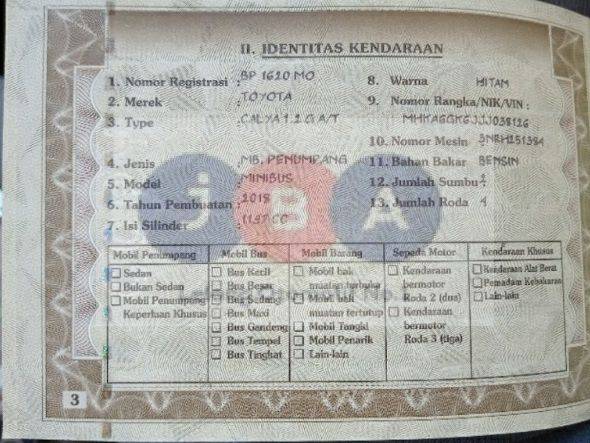 II. IDENTITAS KENDARAAN
1. Nomor Registrasi : BP 1620 MO
2. Merek : TOYOTA
3. Type : CALYA 1.2 G A/T
4. Jenis : MB. PENUMPANG
5. Model : MINIBUS
6. Tahun Pembuatan : 2018
7. Isi Silinder : 1197 CC
8. Warna HITAM
9. Nomor Rangka/NIK/VIN :
MHKA6GK6JJJ038126
10. Nomor Mesin 3NRH251384
11. Bahan Bakar BENSIN
12. Jumlah Sumbu 2
13. Jumlah Roda 4
JBA
Mobil Penumpang
Sedan
Bukan Sedan
Mobil Penumpang
Keperluan Khusus
Mobil Bus
Bus Kecil
Bus Besar
Bus Sedang
Bus Maxi
Bus Gandeng
Bus Tempel
Bus Tingkat
Mobil Barang
Mobil bak
muatan terbuka
Mobil bak
muatan tertutup
Mobil Tangki
Mobil Penarik
Lain-lain
Sepeda Motor
Kendaraan
bermotor
Roda 2 (dua)
Kendaraan
bermotor
Roda 3 (tiga)
Kendaraan Khusus
Kendaraan Alat Berat
Pemadam Kebakaran
Lain-lain
3